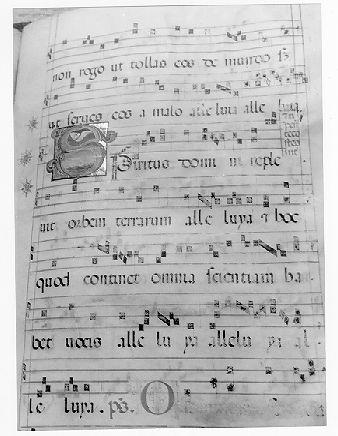 non rogo ut tollas eos de mundo s3
ut serues eos a malo alle luia alle luia.
Spiritus domi ni reple
uit orbem terrarum alle luya & hoc
quod continet omnia scientiam ha-
bet uocis alle lu ya allelu ya al-
le luya. ps. O